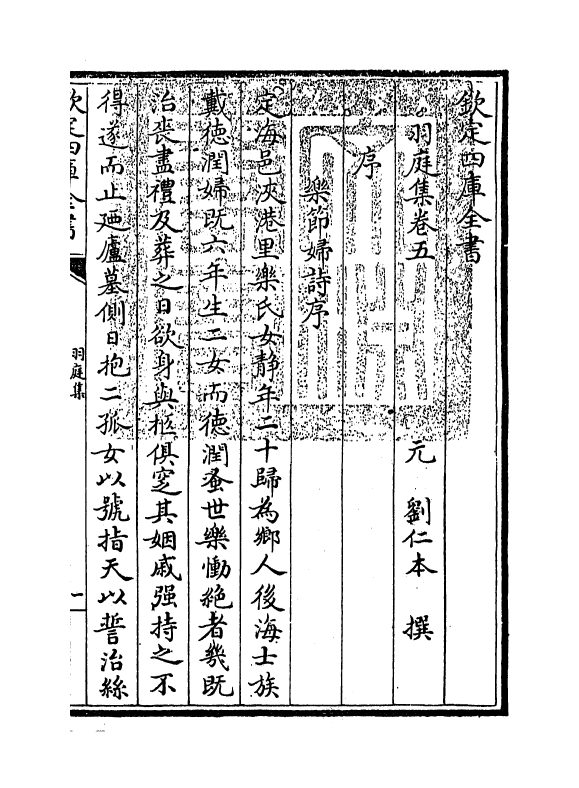 欽定四庫全書
羽庭集卷五
元 劉仁本 撰
序
樂節婦詩序
定海邑浹港里樂氏女静年二十歸為鄉人後海士族
戴徳潤婦既六年生二女而徳潤蚤世樂慟絶者幾既
治喪盡禮及葬之日欲身與柩俱窆其姻戚强持之不
得遂而止廼廬墓側日抱二孤女以號指天以誓治絲
欽定四庫全書
羽庭集
一